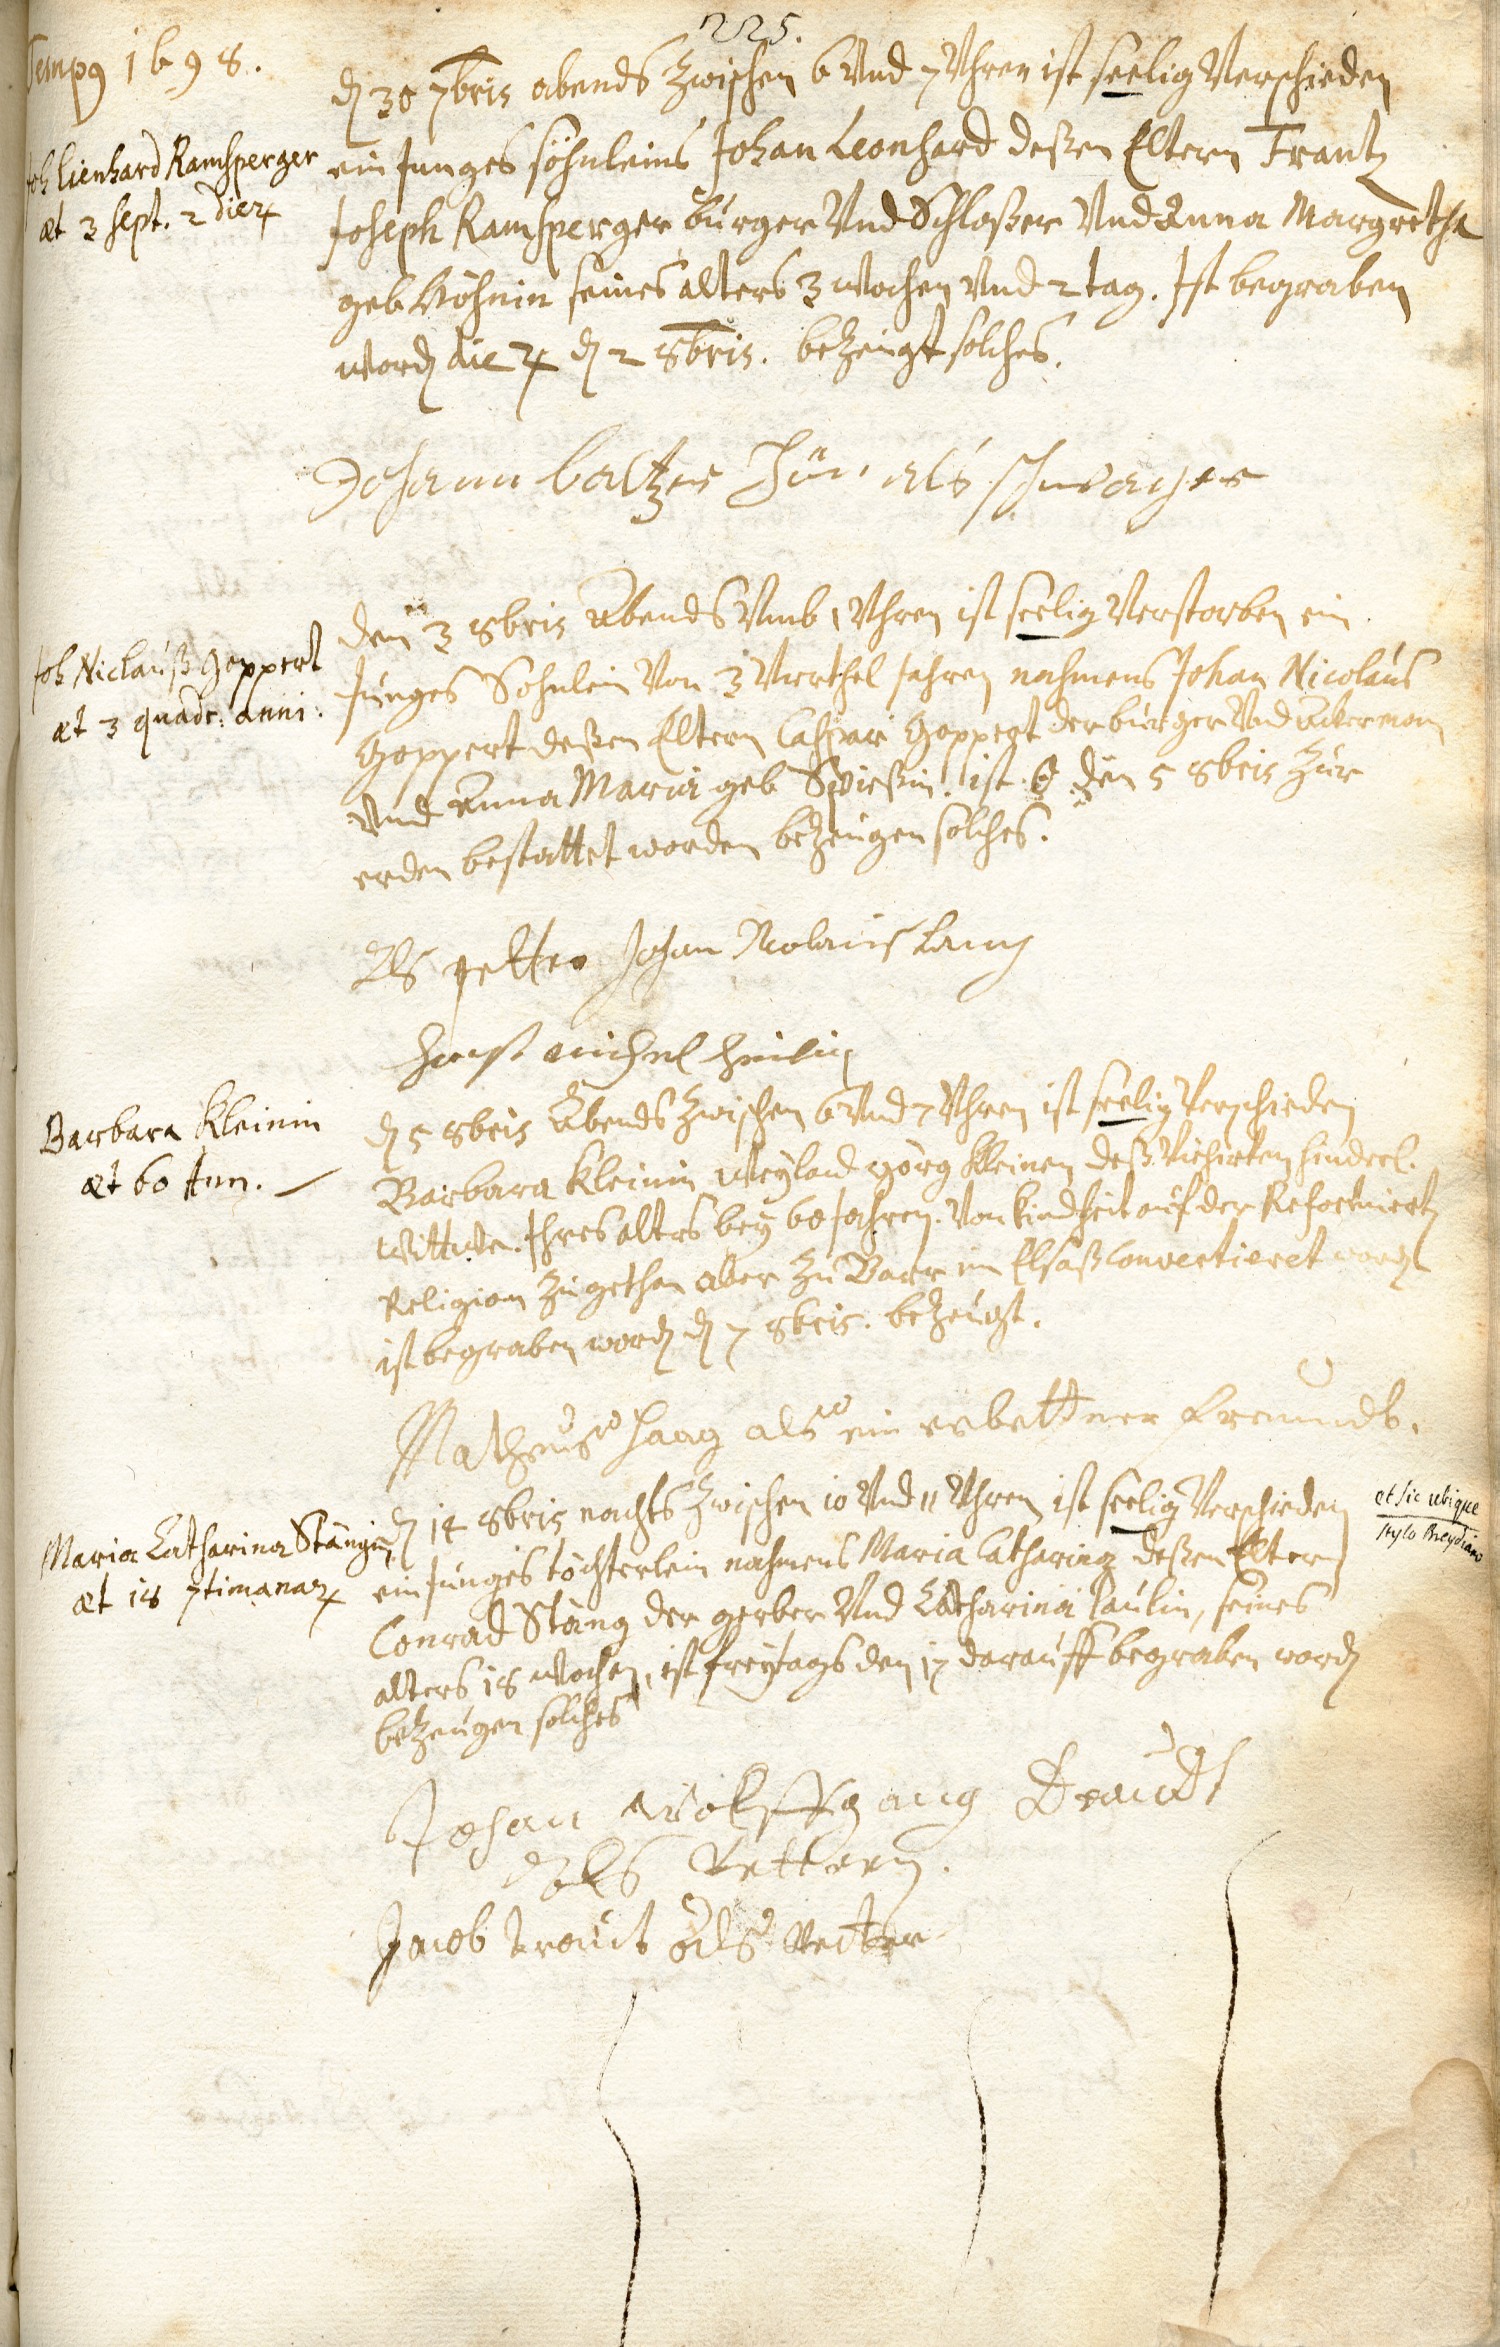 225.
Tempg 1698.
Joh Lienhard Ramsperger
æt 3 sept. 2 dier
d 30 7bris abends zwischen 6 Vnd 7 Vhren ist seelig Verschieden
ein Junges söhnleins Johan Leonhard deßen Eltern Frantz
Joseph Ramsperger burger Vnd Schloßer Vnd Anna Margretha
geb seines alters 3 wochen Vnd 2 tag. Ist begraben
word die d 2 8bris. bezeugt solches.
Johann baltzer als schwager
Joh Niclauß Goppert
æt 3 quadr: anni.
den 3 8bris Abends Vmb 1 Vhren ist seelig Verstorben ein
Junges Sohnlein Von 3 Vierthel Jahren nahmens Johan Nicolaus
Goppert deßen Eltern Caspar Goppert der burger Vnd Ackerman
Vnd Anna Maria geb Spießin. ist den 5 8bris zur
erden bestattet worden bezeugen solches.
Als petter Johan Lang
michel
Barbara Kleinin
æt 60 Ann.
d 5 8bris Abends zwischen 6 Vnd 7 Vhren ist seelig Verschieden
Barbara Kleinin Weyland görg Kleinen deß hinderl.
Wittwe. Ihres alters bey 60 Jahren. Von kindheit auf der Reformiert
Religion zugethan aber zu Barr im Elsaß Convertieret word
ist begraben word d 7 8bris. bezeugt.
Matheus haag als ein erbettner freundt.
Maria Catharina Stängin
æt 18 7timanar
d 14 8bris nachts zwischen 10 Vnd 11 Vhren ist seelig Verschieden
et sic ubique
stylo
ein Junges töchterlein nahmens Maria Catharina deßen Eltern
Conrad Stäng der gerber Vnd Catharina Paulin, seines
alters 18 Wochen, ist freytags den 17 darauff begraben word
bezeugen solches
Johan Wolffgang Braudt
Als Vettern.
Jacob traut als Vetter